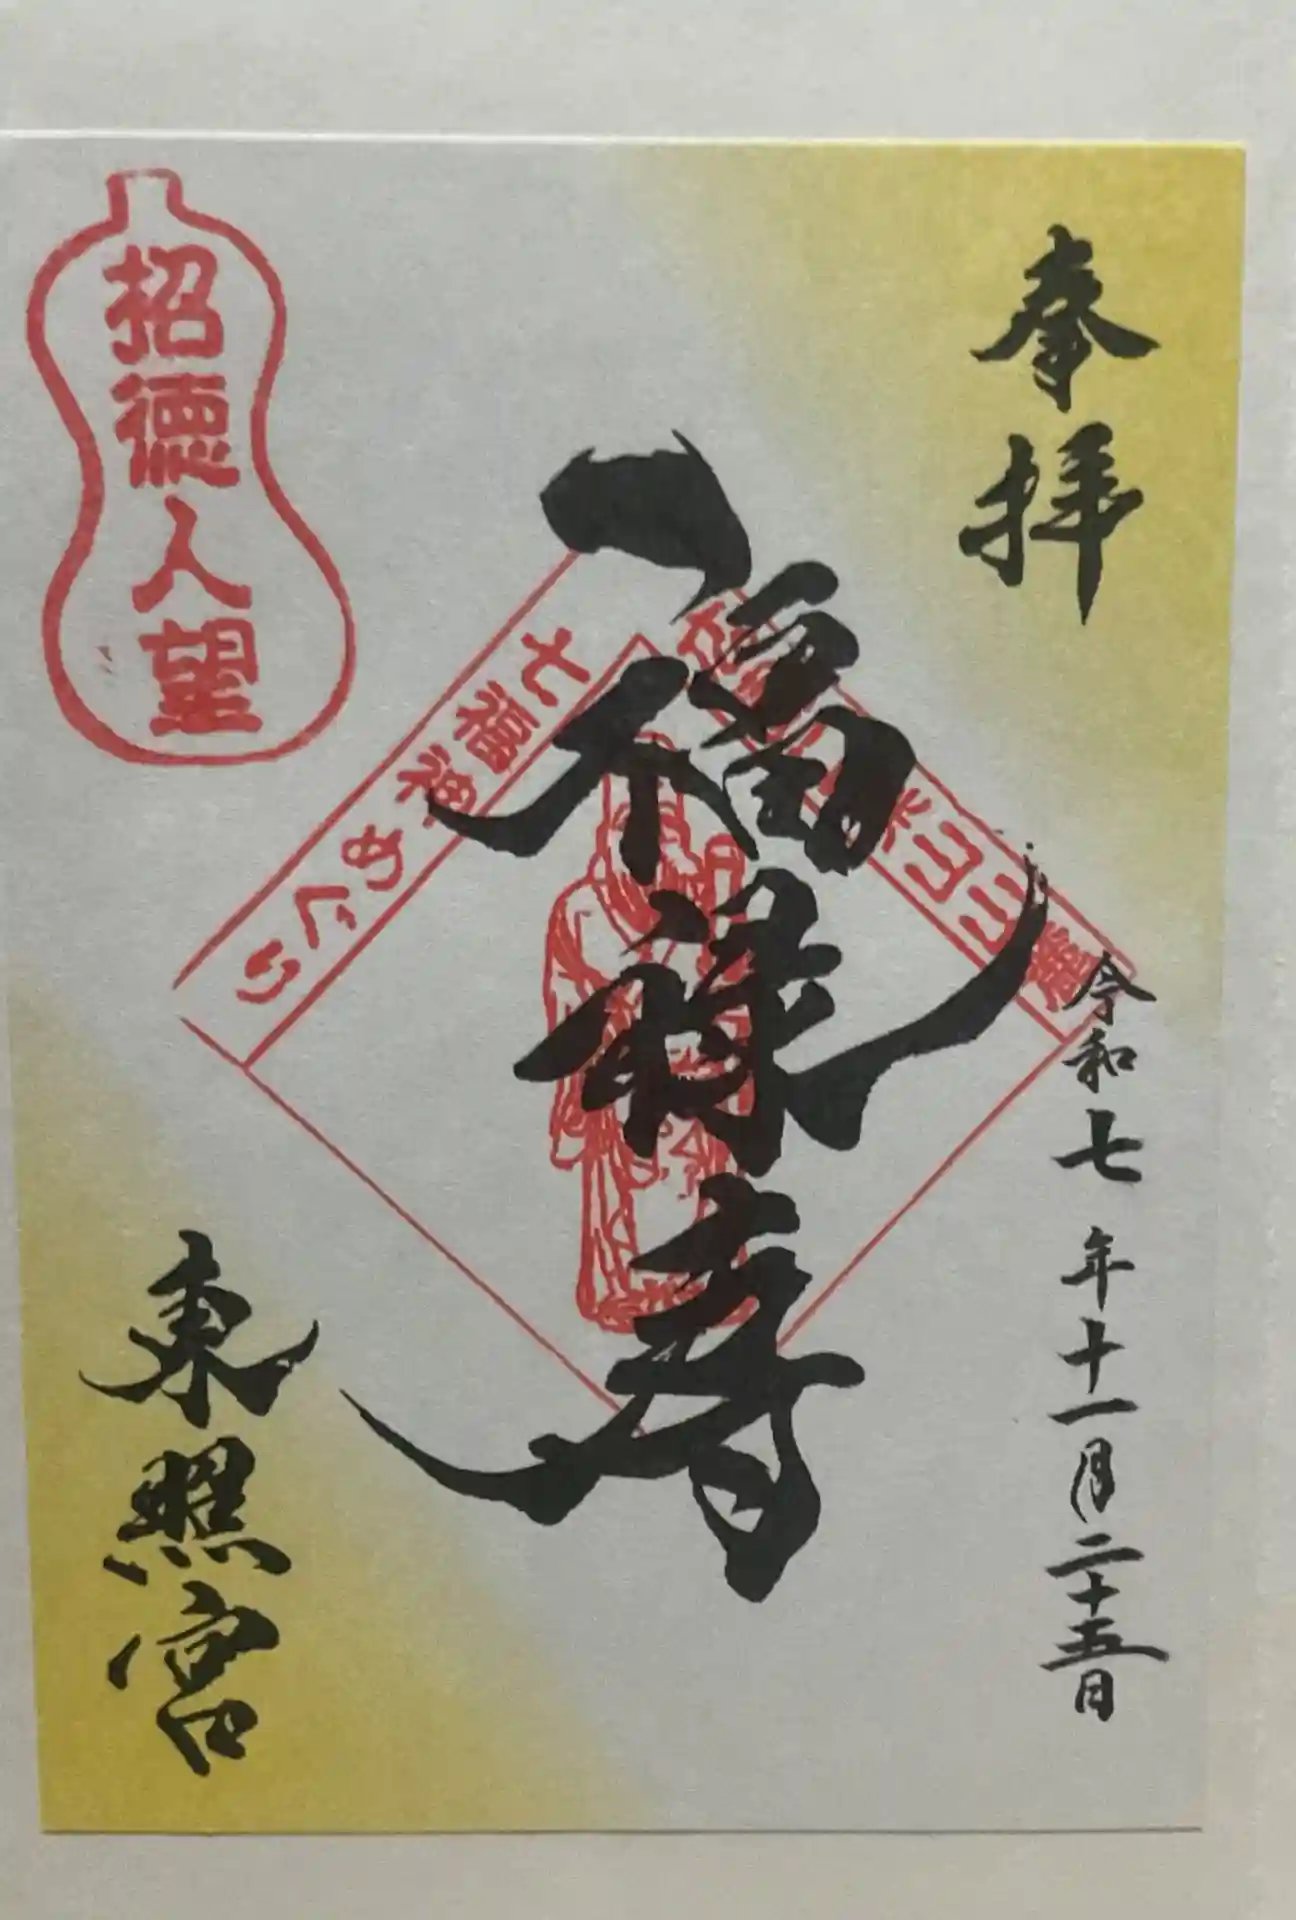 奉拝
福禄寿
令和七年十一月二十五日
東照宮
招徳人望
七福神めぐり